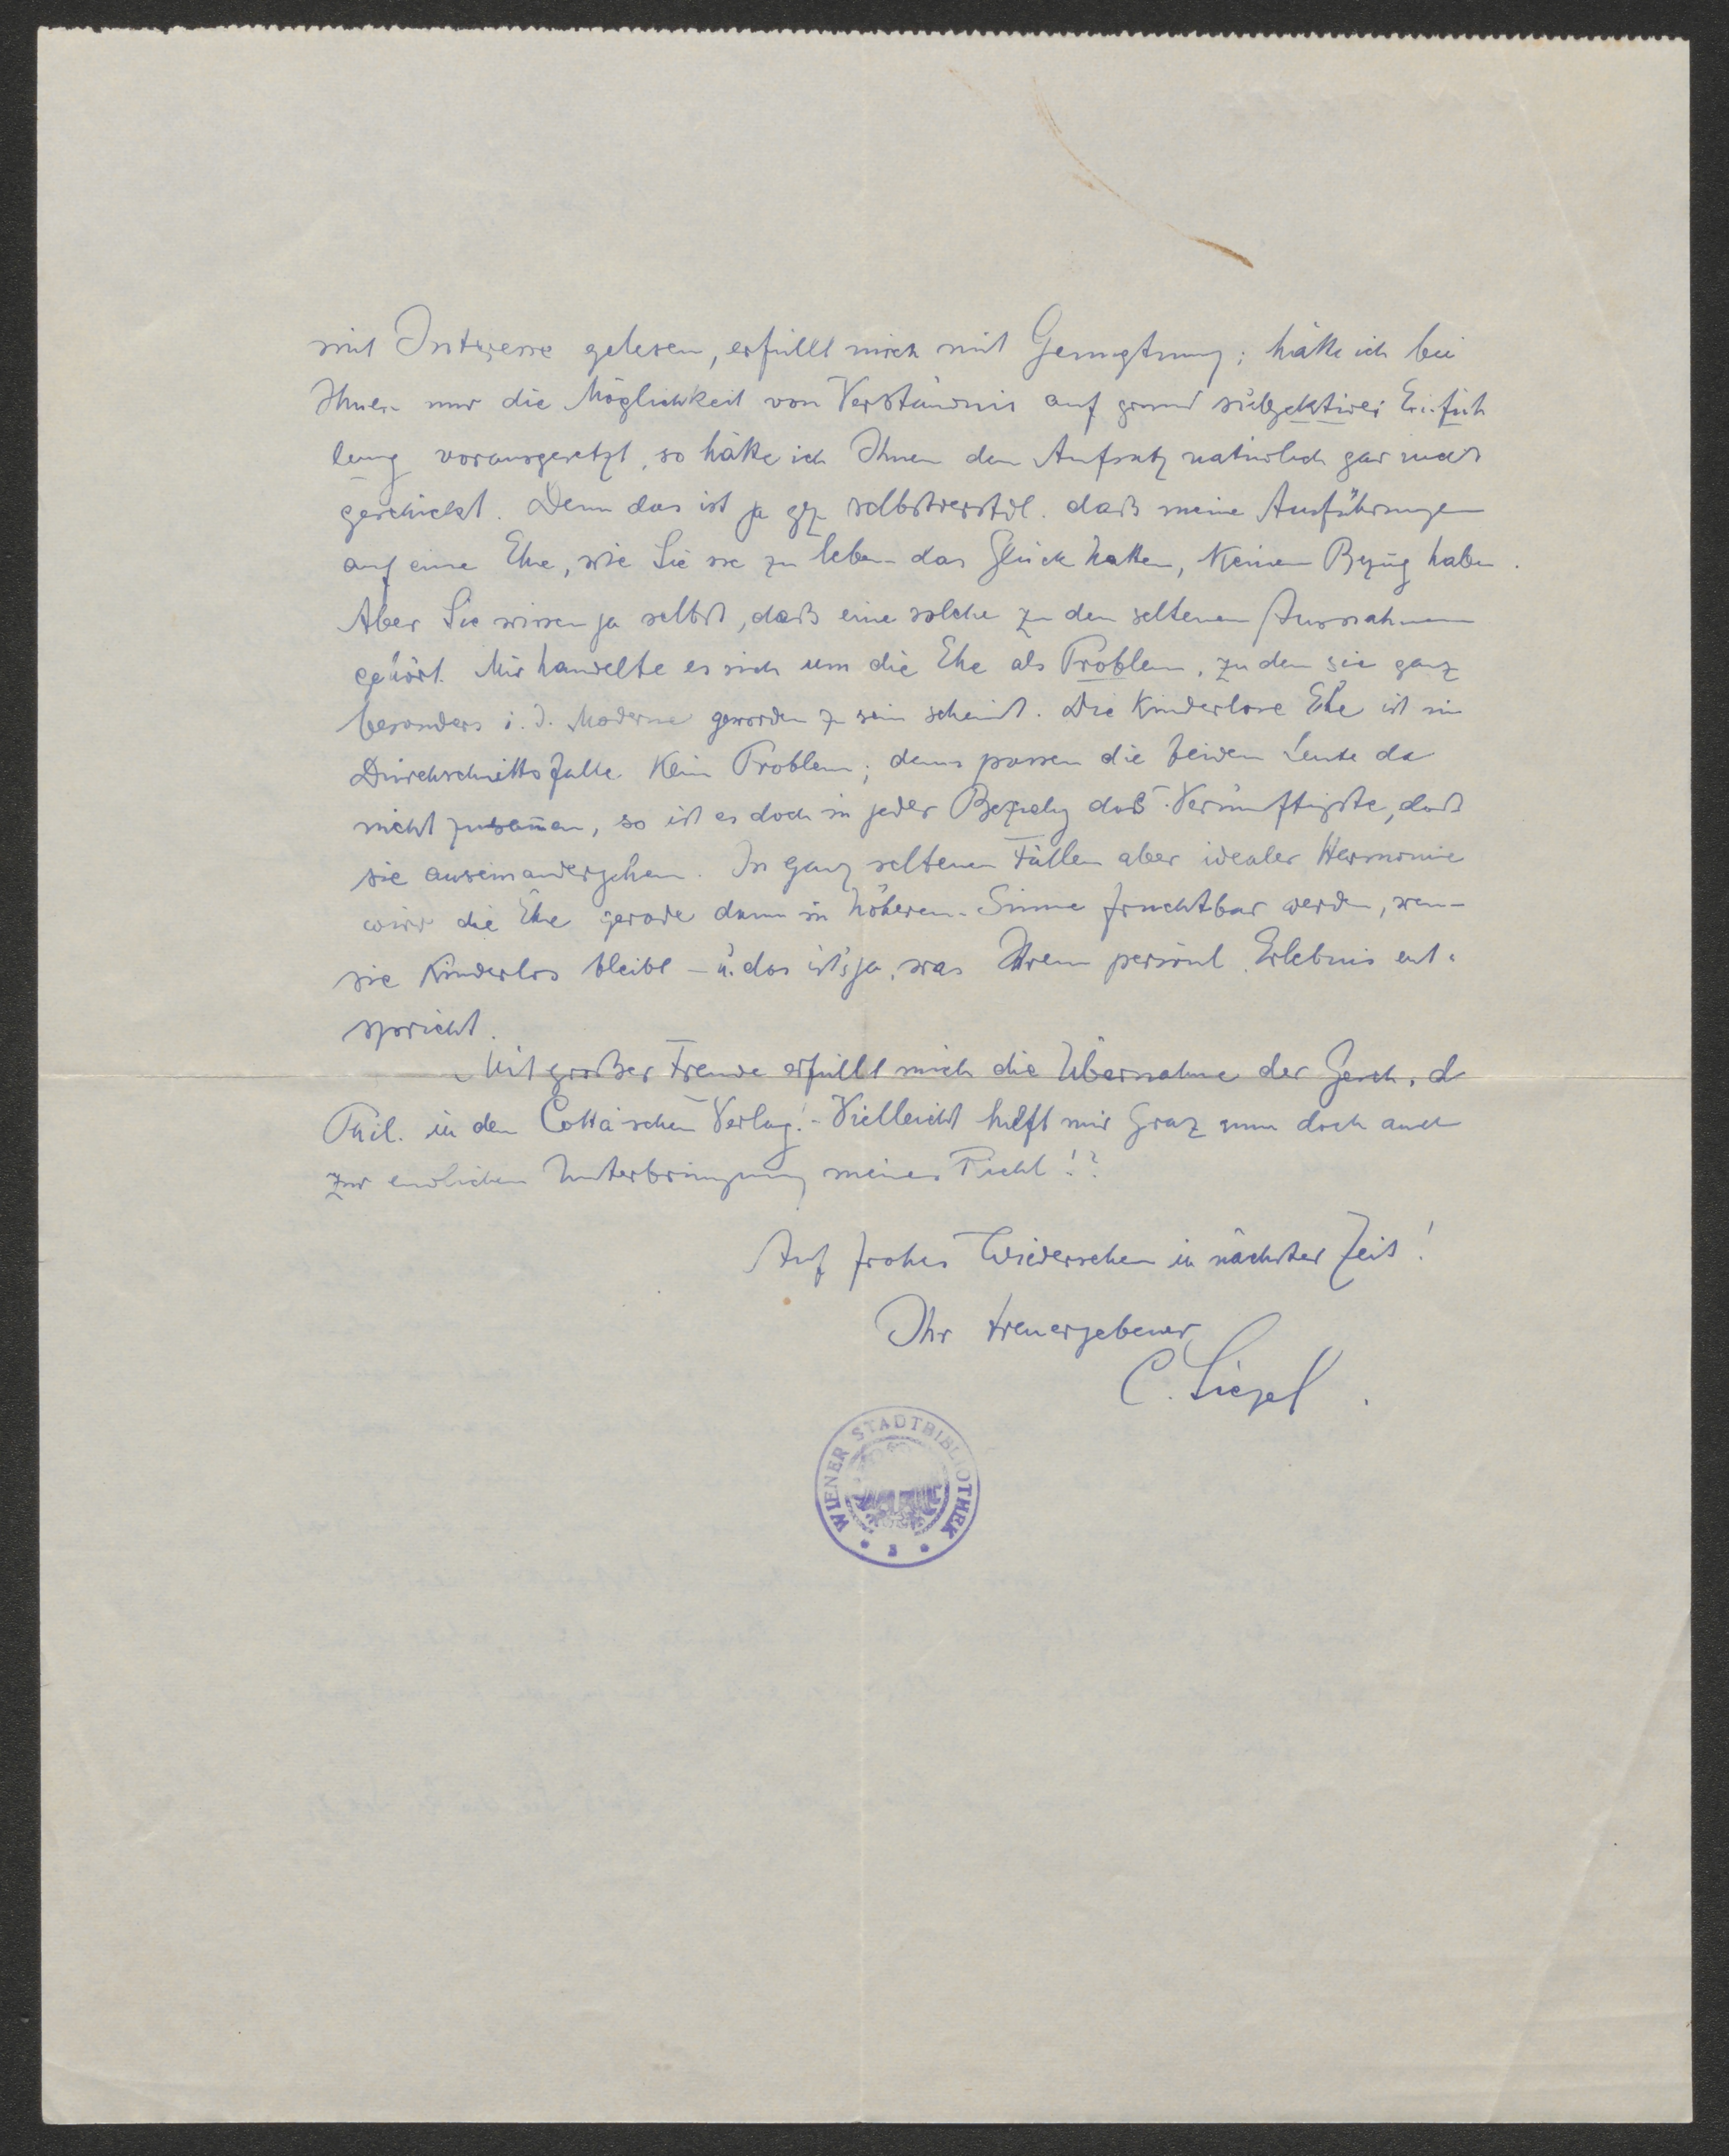 mit Interesse gelesen, erfüllt mich mit Genugtuung; hätte ich bei
Ihnen nur die Möglichkeit von Verständnis auf grund subjektiver Einfüh
lung vorausgesetzt, so hätte ich Ihnen den Aufsatz natürlich gar nicht
geschickt. Denn das ist ja gz selbstverstdl. daß meine Ausführungen
auf eine Ehe, wie Sie sie zu leben das Glück hatten, keinen Bezug haben.
Aber Sie wissen ja selbst, daß eine solche zu den seltenen Ausnahmen
gehört. Mir handelte es sich um die Ehe als Problem, zu dem sie ganz
besonders i. d. Moderne geworden zu sein scheint. Die kinderlose Ehe ist im
Durchschnittsfalle kein Problem; denn passen die beiden Leute da
nicht zusam̄en, so ist es doch in jeder Beziehg das Vernünftigste, daß
sie auseinandergehen. In ganz seltenen Fällen aber idealer Harmonie
wird die Ehe gerade dann in höherem Sinne fruchtbar werden, wenn
sie kinderlos bleibt – u. das ist's ja, was Ihrem persönl. Erlebnis ent-
spricht.
Mit großer Freude erfüllt mich die Übernahme der Gesch. d
Phil. in den Cotta'schen Verlag! – Vielleicht hilft mir Graz nun doch auch
zur endlichen Unterbringung meines Riehl!?
Auf frohes Wiedersehen in nächster Zeit!
Ihr treuergebener
C. Siegel.
WIENER STADTBIBLIOTHEK